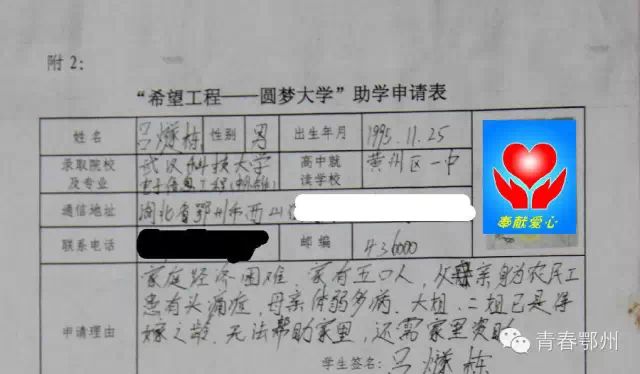 附2：
“希望工程——圆梦大学”助学申请表
姓名 吕燧栋 性别 男 出生年月 1995.11.25
录取院校及专业 武汉科技大学 电子信息工程 高中就读学校 黄州区一中
通信地址 湖北省鄂州市西山
联系电话 邮编 436000
奉献爱心
家庭经济困难，家有五口人，父亲身为农民工
患有头痛症，母亲体弱多病，大姐、二姐已是待
申请理由 嫁之龄，无法帮助家里，还需家里资助
学生签名：吕燧栋
青春鄂州